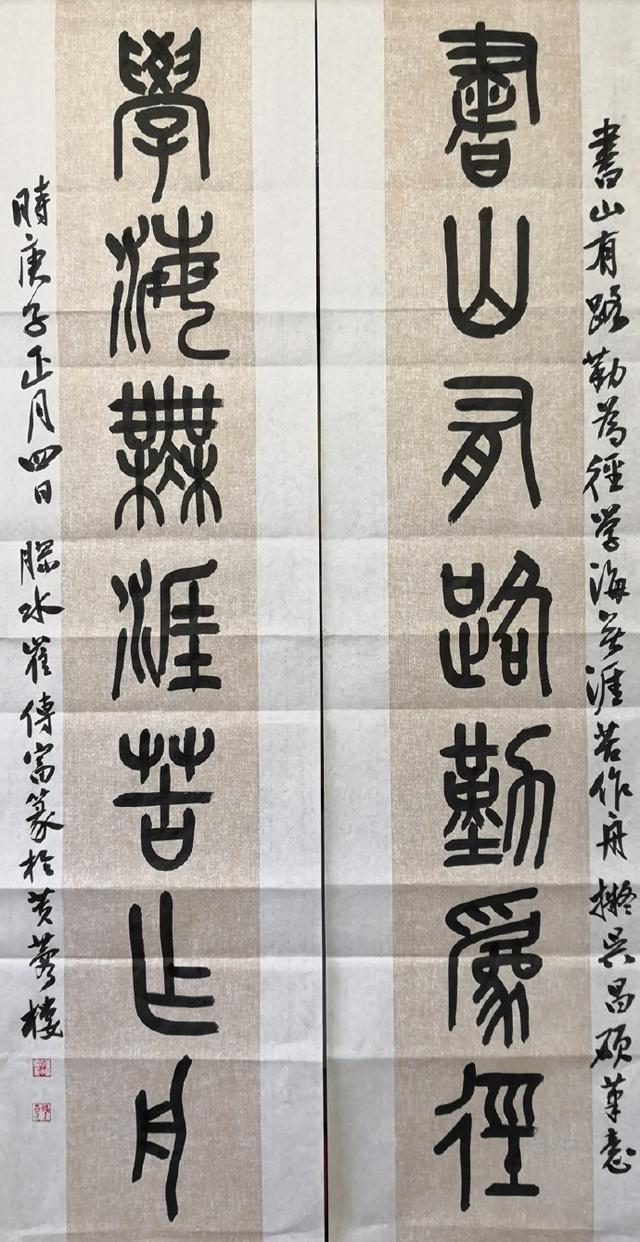 書山有路勤為徑学海無涯苦作舟擬吳昌碩筆意
書山有路勤爲徑
學海無涯苦作舟
時庚子正月四日 膠水崔傳富篆於黃